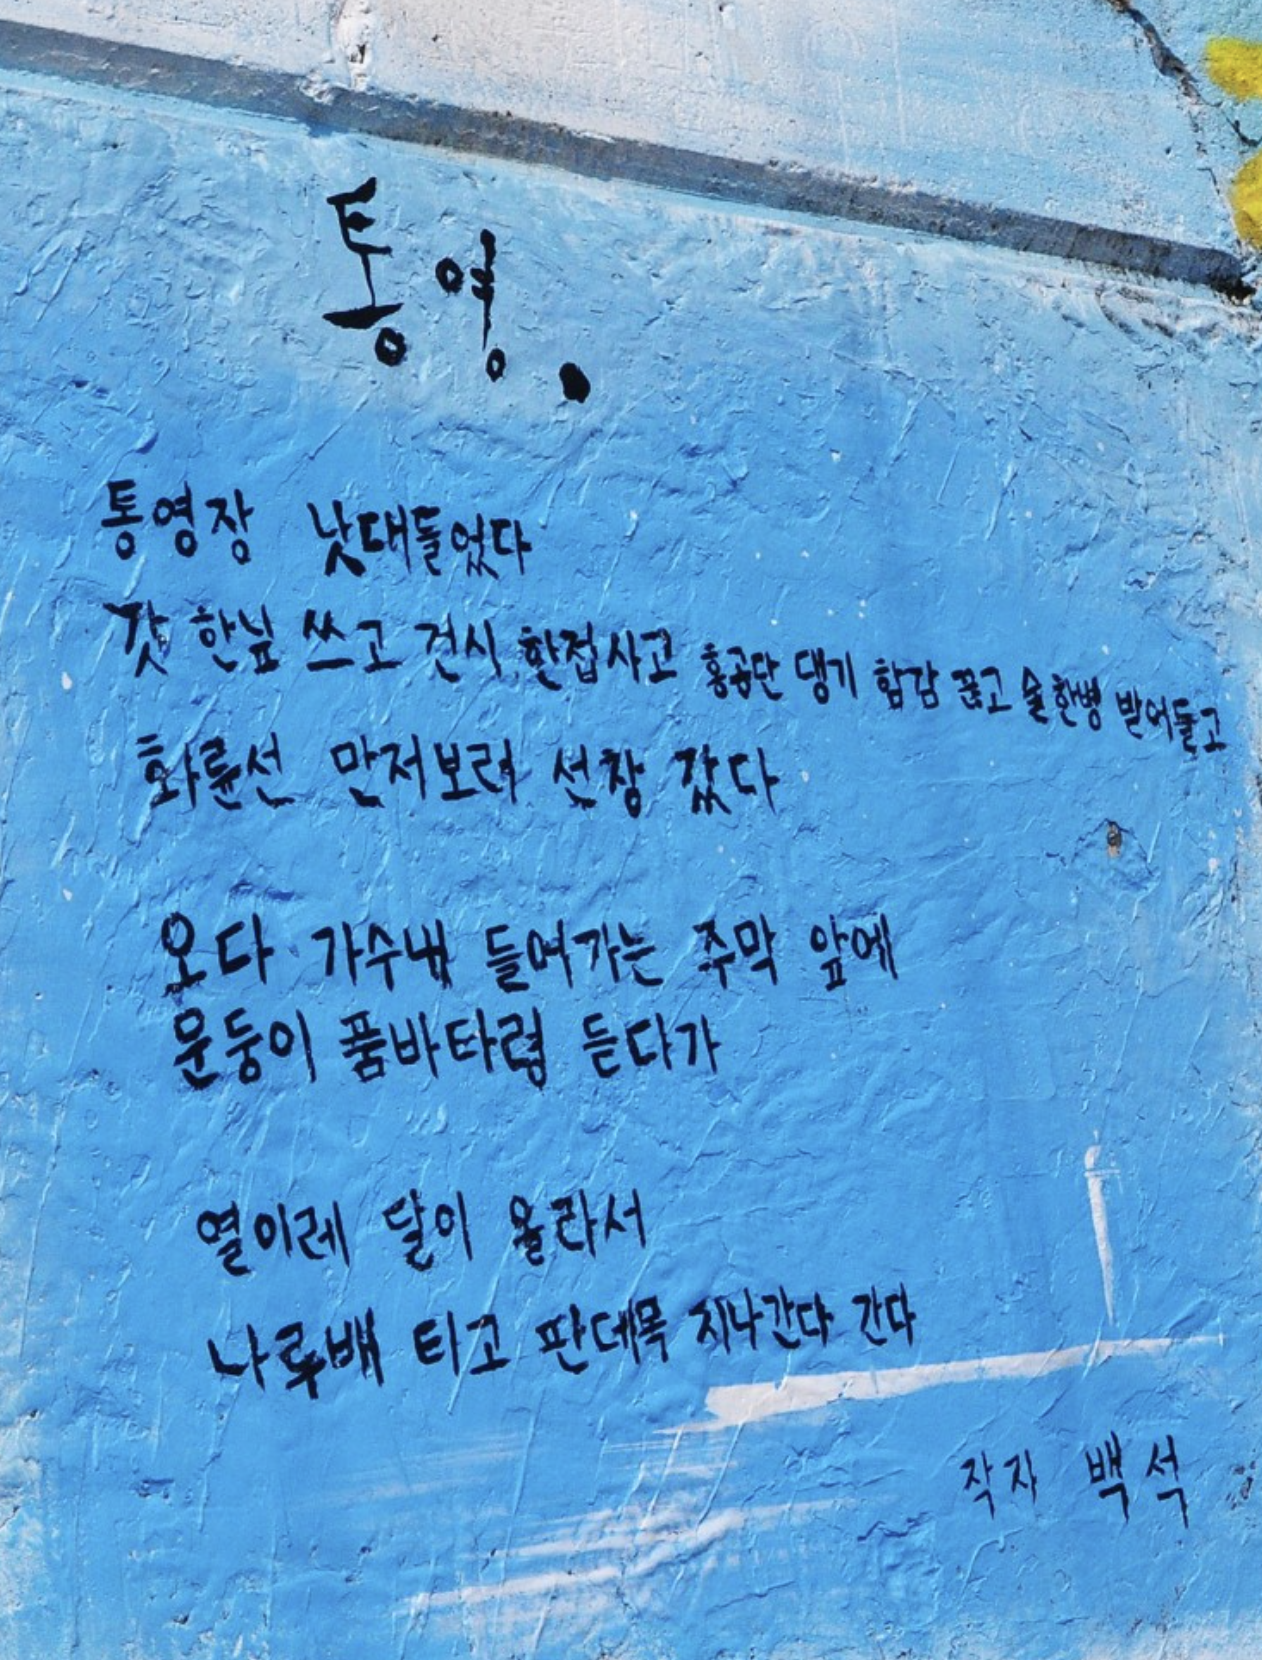 통영.
통영장 낫대들었다
갓 한닢 쓰고 건시 한접사고 홍공단 댕기 함감 끊고 술한병 받어들고
화륜선 만저보려 선창 갔다
오다 가수내 들어가는 주막 앞에
문둥이 품바타령 듣다가
열이레 달이 올라서
나루배 타고 판데목 지나간다 간다
작자 백석